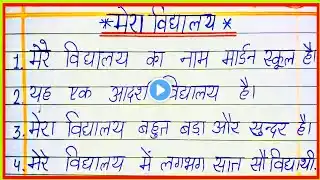 *मेरा विद्यालय*
1. मेरे विद्यालय का नाम मार्डन स्कूल है।
2. यह एक आदर्श विद्यालय है।
3. मेरा विद्यालय बहुत बडा और सुन्दर है।
4. मेरे विद्यालय में लगभग सात सौ विद्यार्थी.